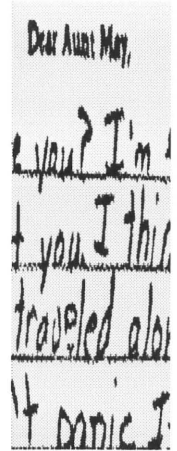 Dear Aunt May,
you? I'm
you I thin
traveled alo
't panic I